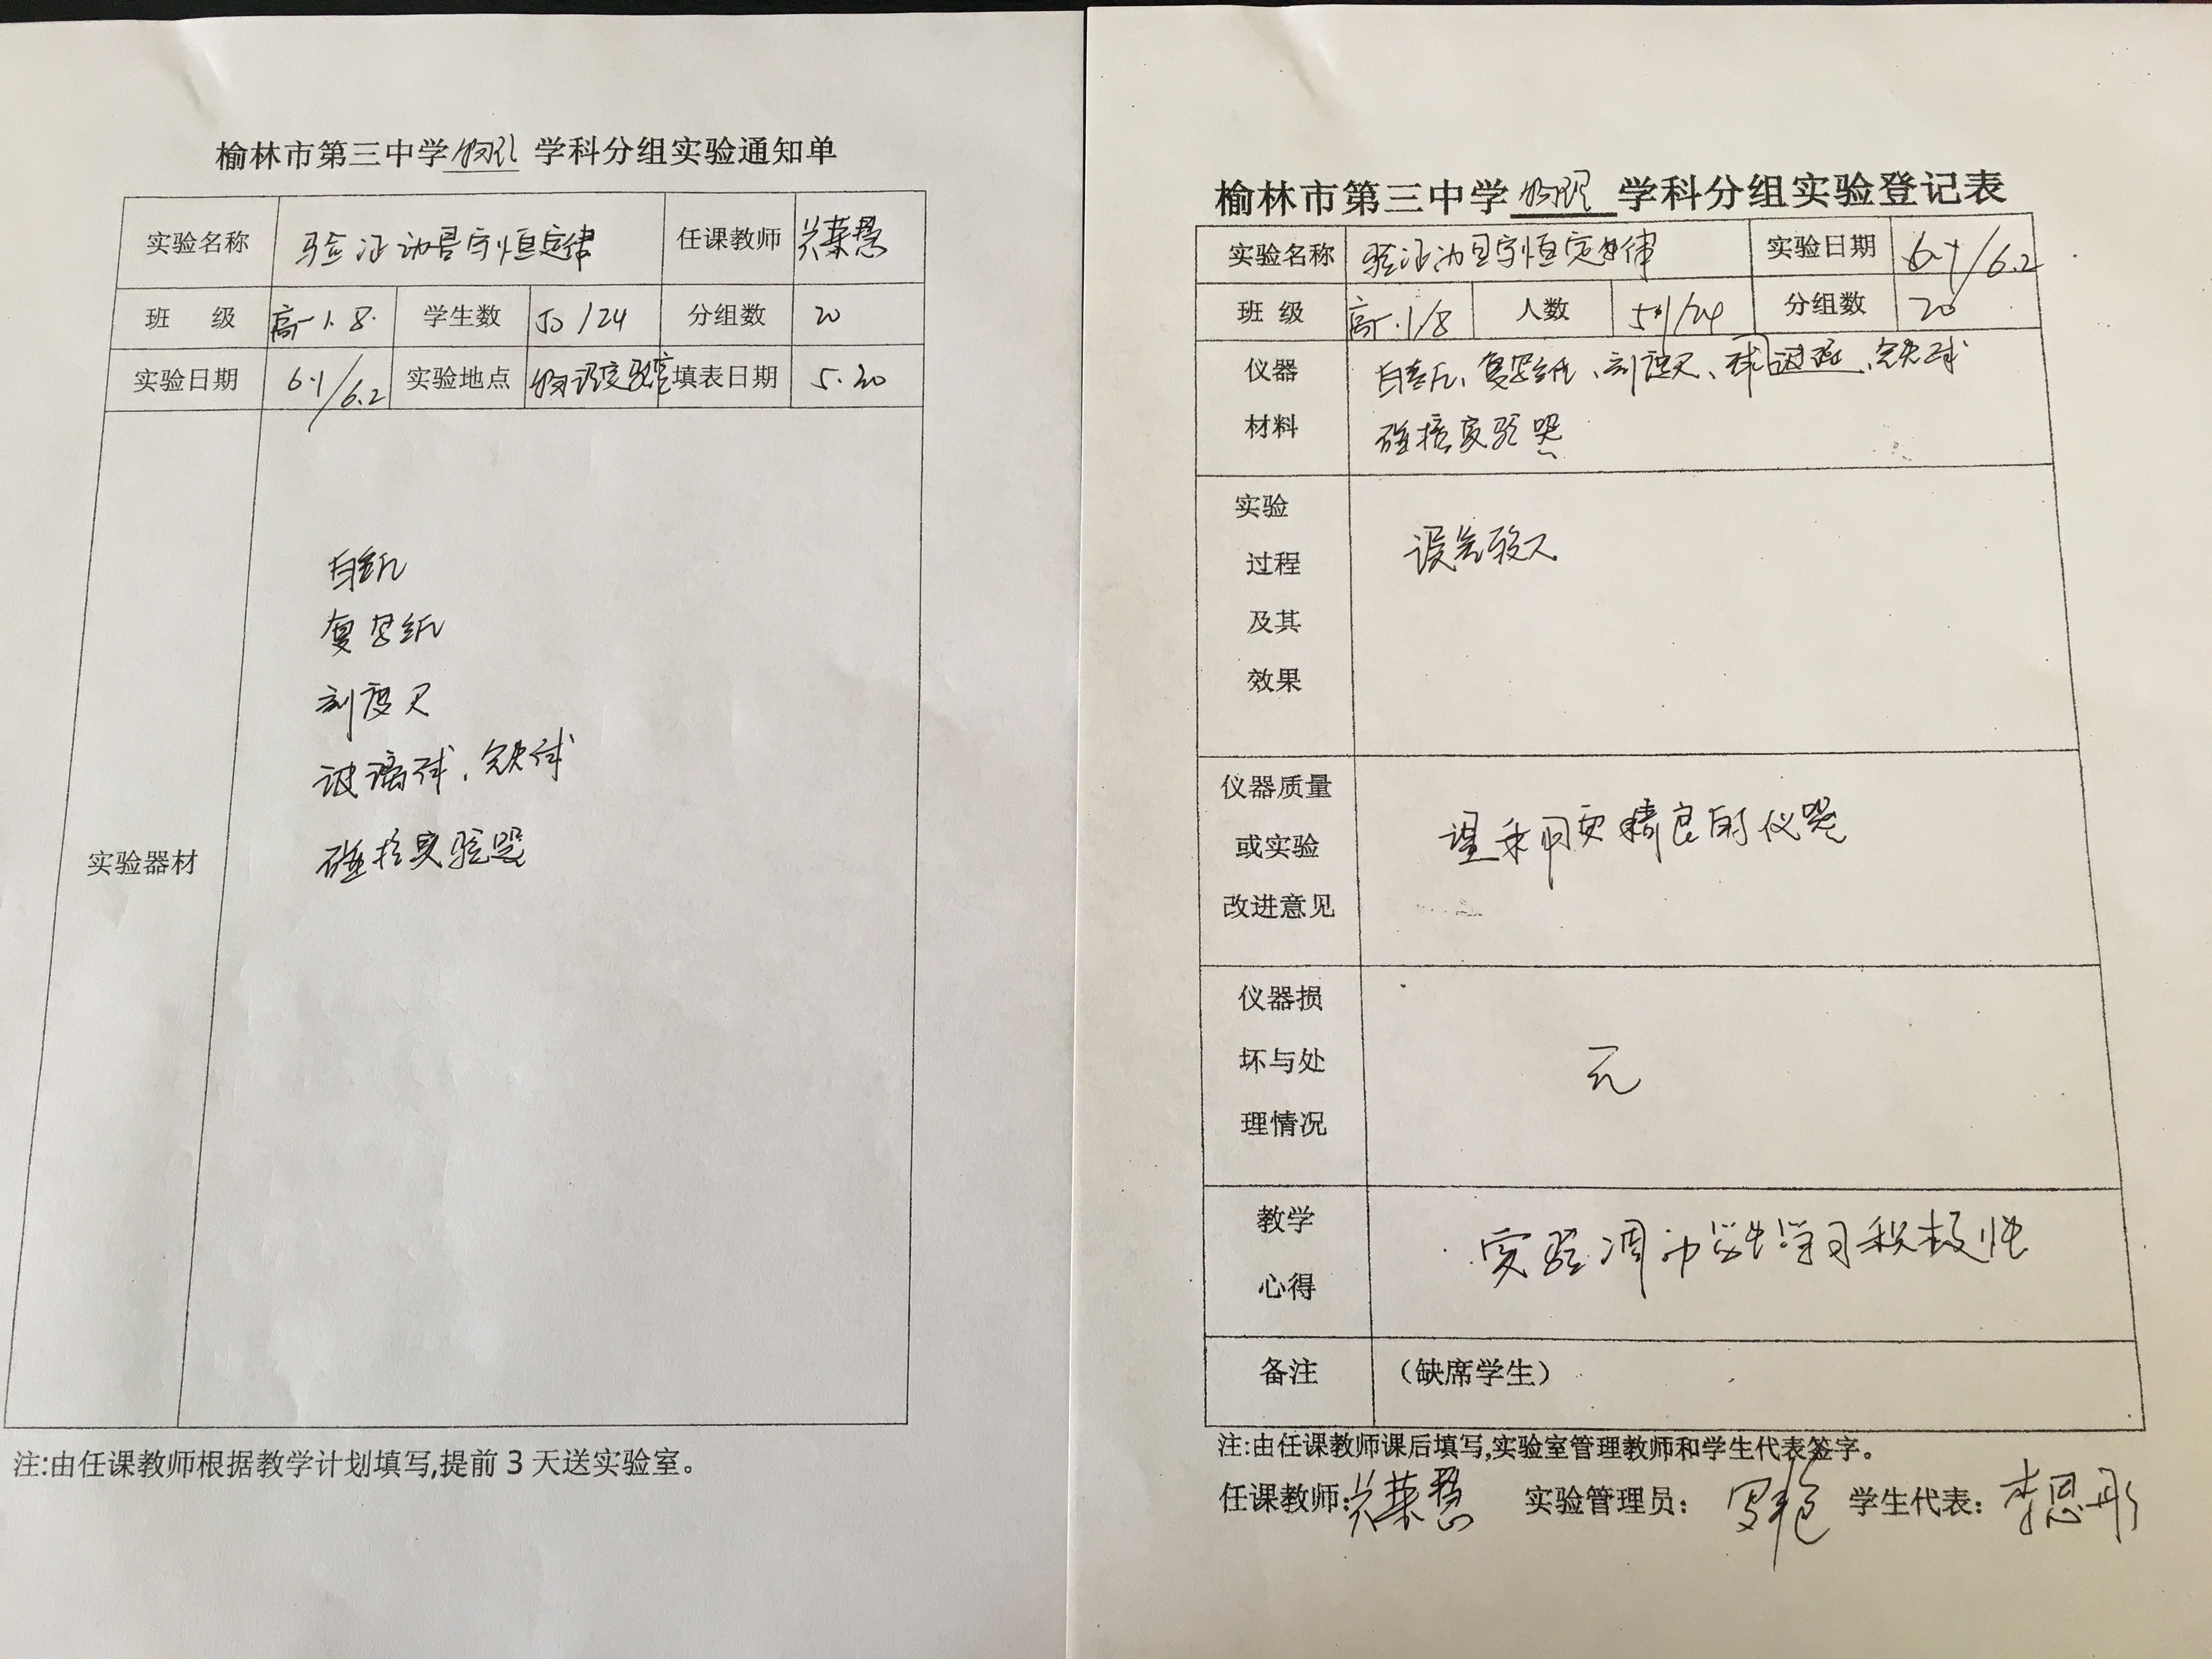 榆林市第三中学物理 学科分组实验通知单
实验名称 验证动量守恒定律 任课教师
班 级 高一1.8. 学生数 50/24 分组数 20
实验日期 6.1/6.2 实验地点 物理实验室 填表日期 5.20
实验器材
白纸
复写纸
刻度尺
玻璃球、铁球
碰撞实验器
注:由任课教师根据教学计划填写,提前3天送实验室。
榆林市第三中学物理 学科分组实验登记表
实验名称 验证动量守恒定律 实验日期 6.1/6.2
班 级 高一.1/8 人数 /24 分组数 20
仪器 白纸、复写纸、刻度尺、球玻璃、铁球
材料 碰撞实验器
实验
过程 误差较大
及其
效果
仪器质量
或实验 望采用更精良的仪器
改进意见
仪器损
坏与处 无
理情况
教学 实验调动学生学习积极性
心得
备注 (缺席学生)
注:由任课教师课后填写,实验室管理教师和学生代表签字。
任课教师: 实验管理员: 学生代表:李思彤